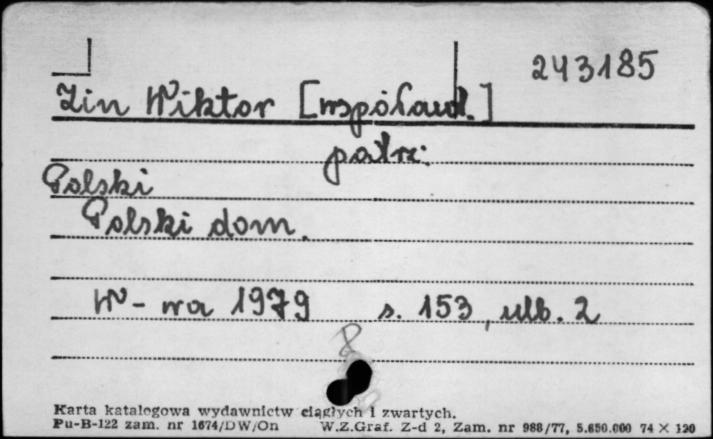 243185
Zin Wiktor [współaut.]
patrz:
Polski
Polski dom.
W-wa 1979 s. 153, nlb. 2
Karta katalogowa wydawnictw ciągłych i zwartych.
Pu-B-122 zam. nr 1674/DW/On W.Z.Graf. Z-d 2, Zam. nr 988/77, 5.650.000 74 × 120